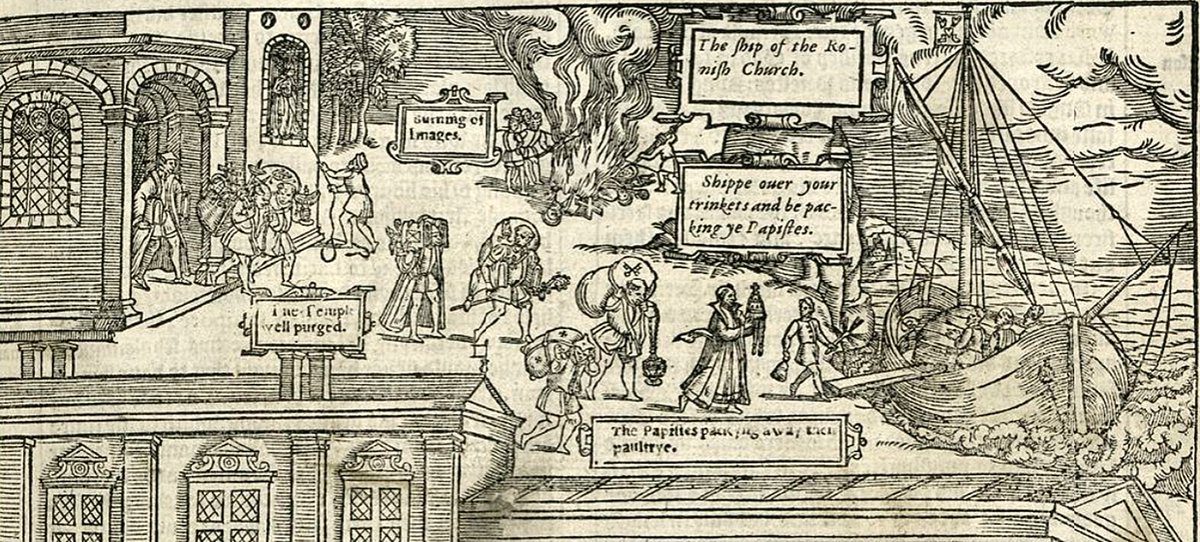 The ship of the Ro-
nish Church.
Burning of
Images.
Shippe ouer your
trinkets and be pac-
king ye Papistes.
The Temple
well purged.
The Papistes packyng away their
paultrye.